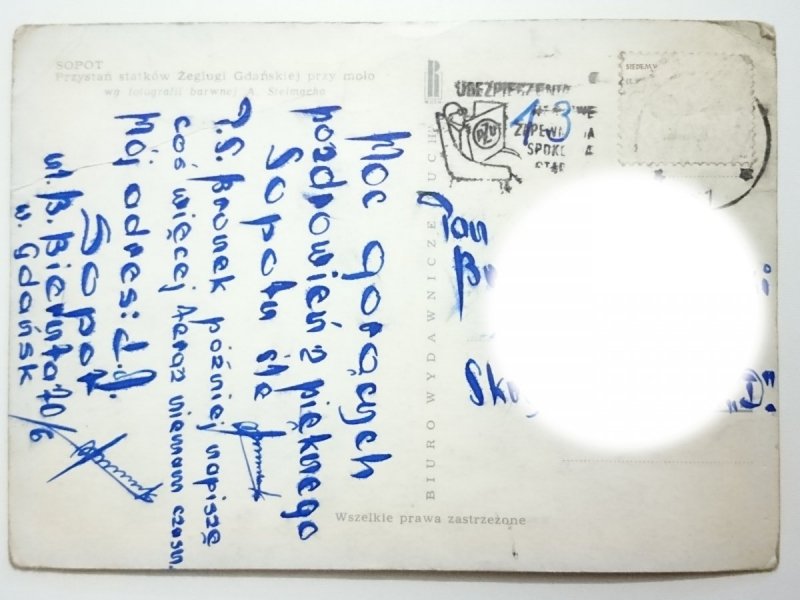 SOPOT
Przystań statków Żeglugi Gdańskiej przy molo
wg fotografii barwnej A. Stelmacha
Moc gorących
pozdrowień z pięknego
Sopotu śle
P.S. Bronek później napiszę
coś więcej teraz niemam czasu.
Mój adres: L.J.
Sopot
ul. B. Bieruta 70/6
w. Gdańsk
BIURO WYDAWNICZE RUCH
UBEZPIECZENIA
PZU
13
SPOK
Pan
Wszelkie prawa zastrzeżone